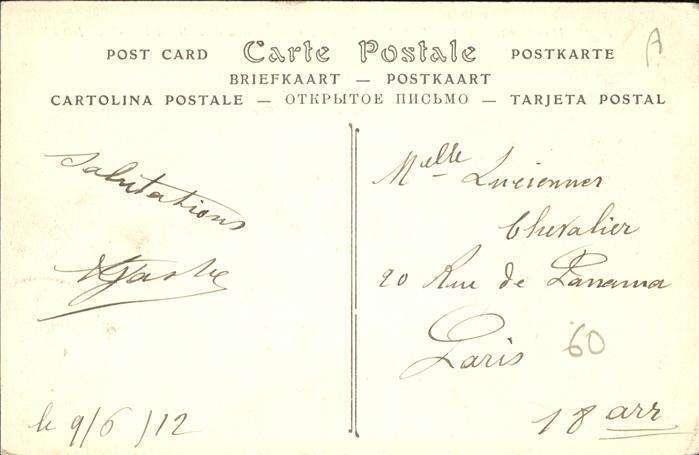 A
POST CARD Carte Postale POSTKARTE
BRIEFKAART — POSTKAART
CARTOLINA POSTALE — ОТКРЫТОЕ ПИСЬМО — TARJETA POSTAL
Salutations
le 9/6/12
Melle Lucienner
Chevalier
20 Rue de Panama
Paris
60
18 arr